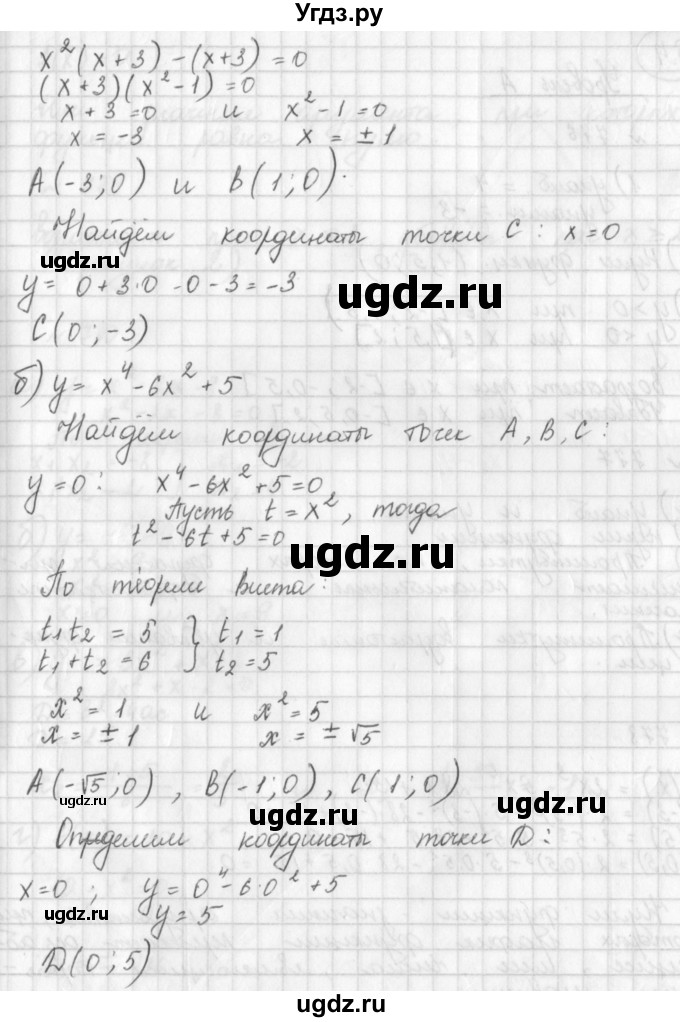 Угдз.ру
x²(x+3)-(x+3)=0
(x+3)(x²-1)=0
x+3=0 и x²-1=0
x=-3 x=±1
A(-3;0) и B(1;0).
Найдём координаты точки C: x=0
угдз.ру
y= 0+3·0-0-3=-3
ugdz.ru
C(0;-3)
б) y=x⁴-6x²+5
Найдём координаты точек A, B, C:
y=0: x⁴-6x²+5=0
Пусть t=x², тогда
t²-6t+5=0
ugdz.ru
По теореми Виета:
t₁t₂=5 } t₁=1
t₁+t₂=6 } t₂=5
x²=1 и x²=5
x=±1 x=±√5
A(-√5;0), B(-1;0), C(1;0)
угдз.ру
ugdz.ru
Определим координаты точки D:
x=0; y=0⁴-6·0²+5
угдз.ру
y=5
D(0;5)
ugdz.ru